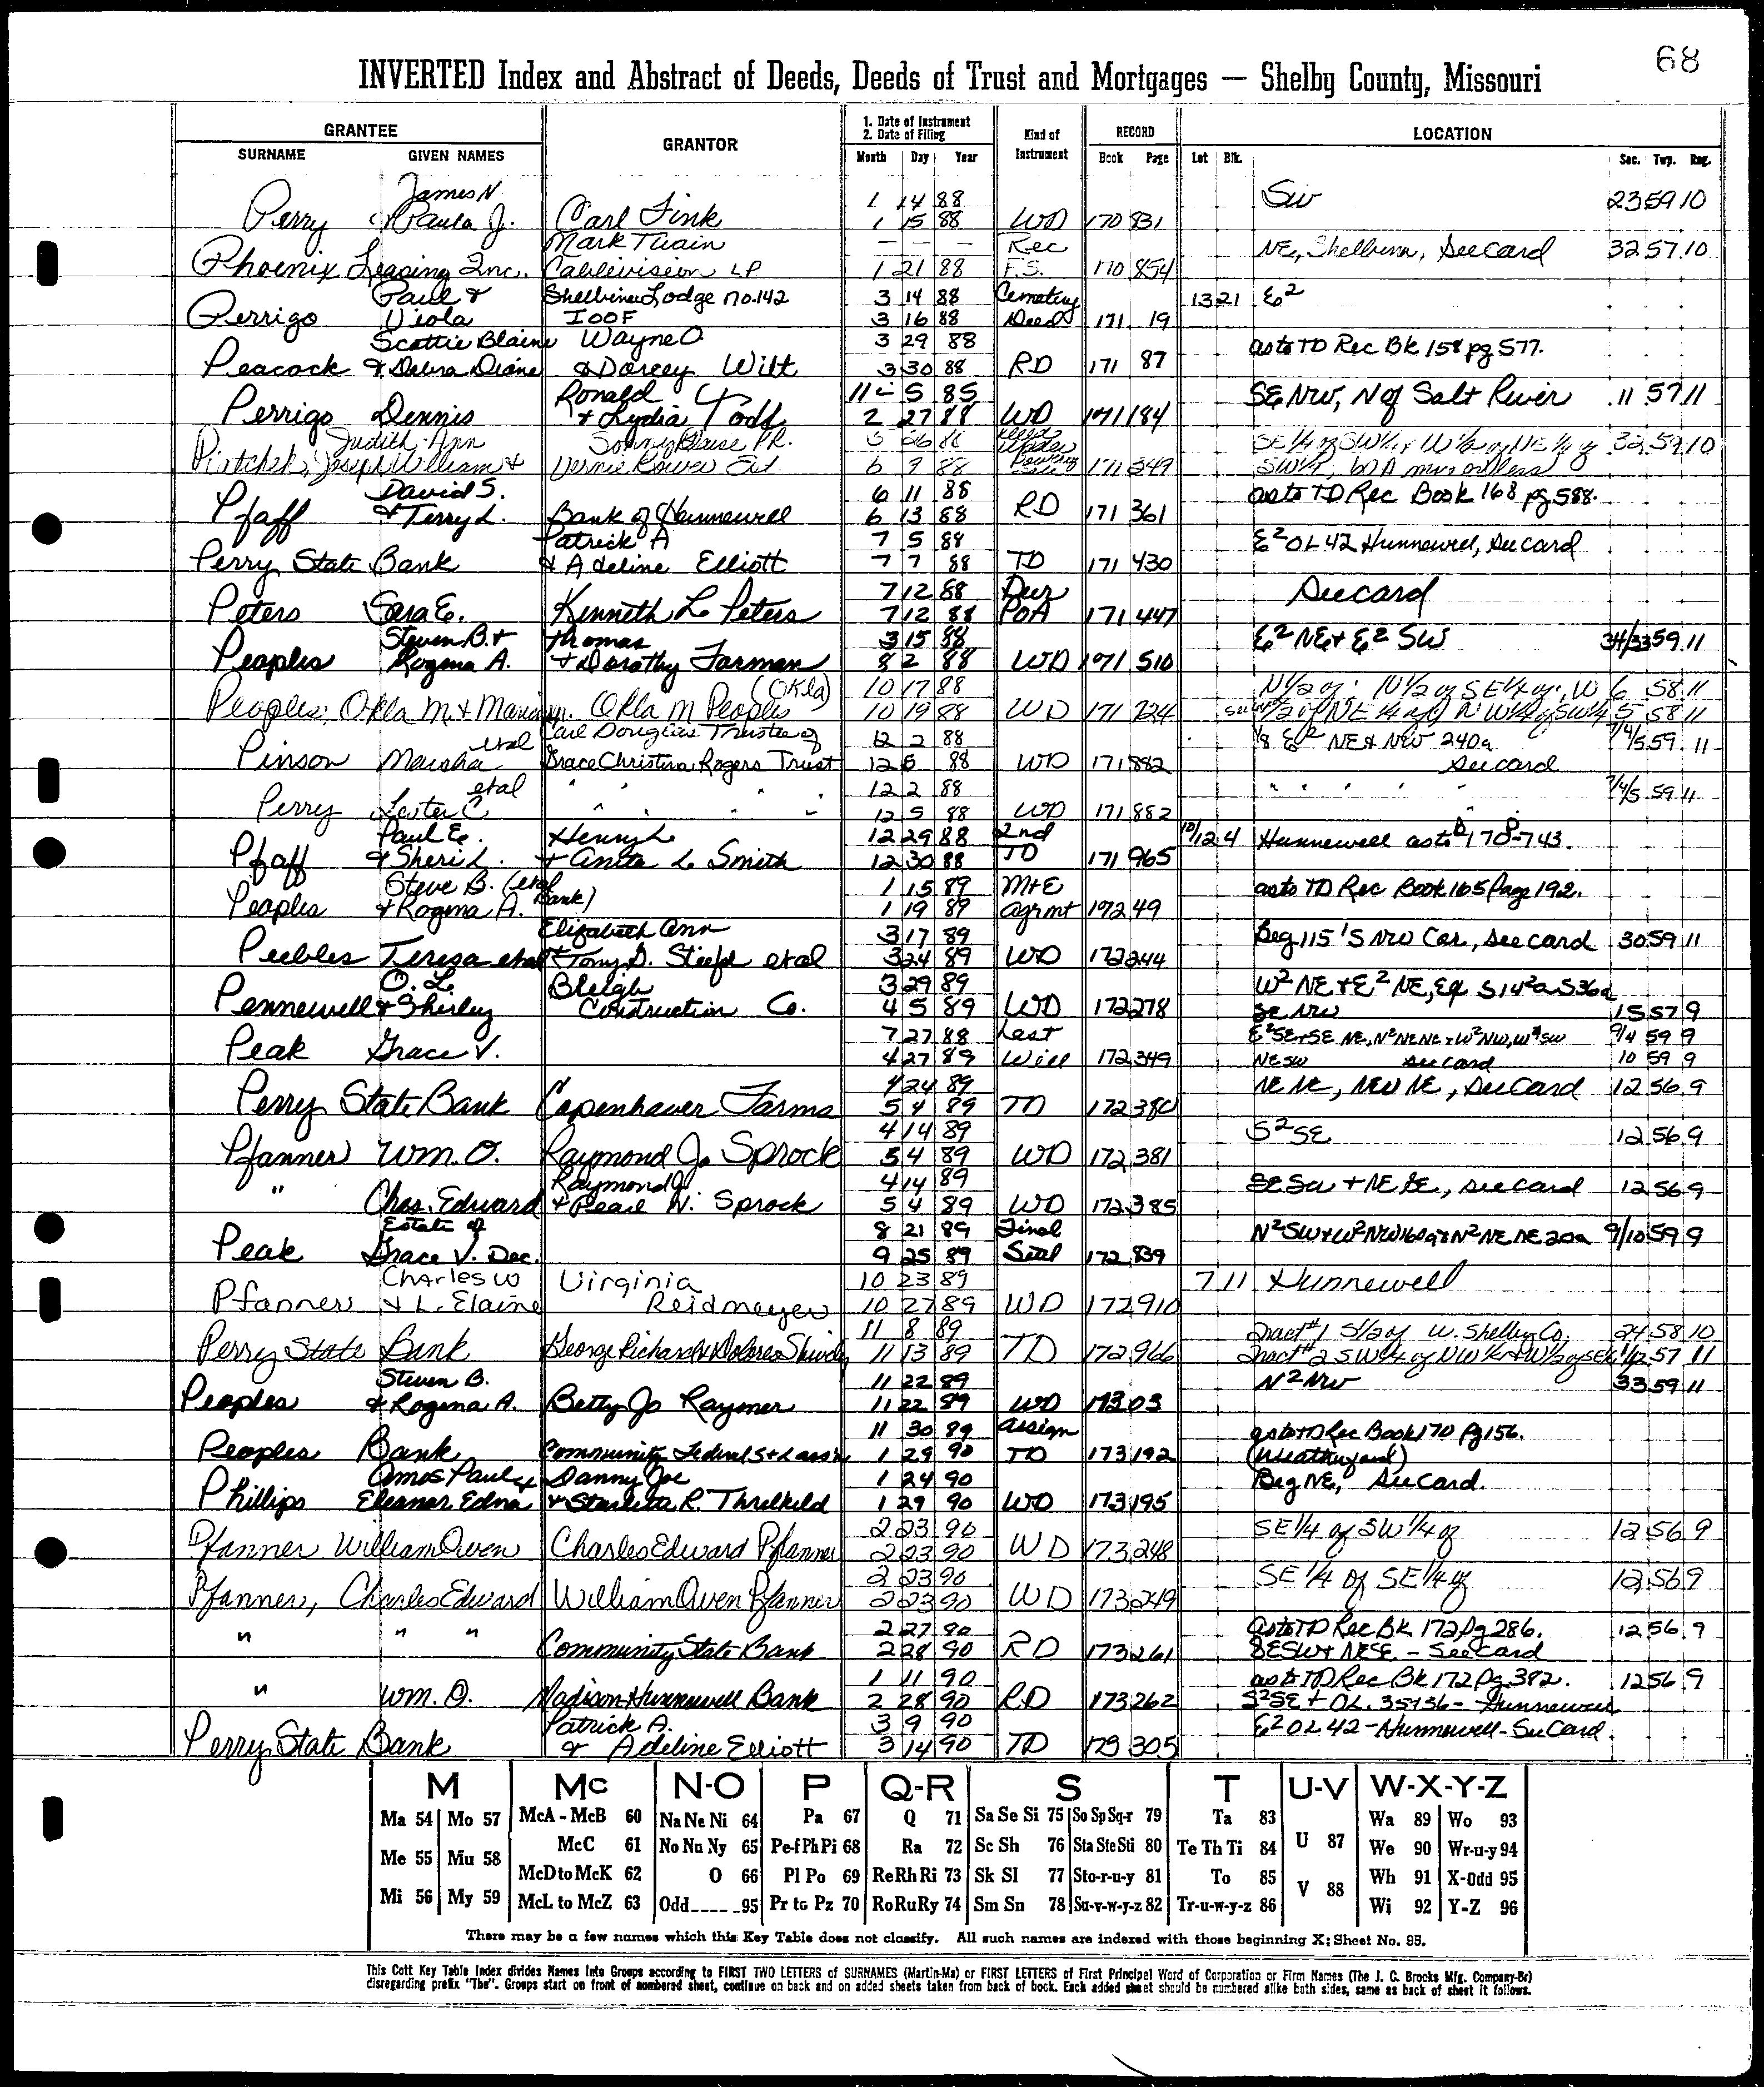 68
INVERTED Index and Abstract of Deeds, Deeds of Trust and Mortgages — Shelby County, Missouri
GRANTEE GRANTOR 1. Date of Instrument 2. Date of Filing Kind of Instrument RECORD LOCATION
SURNAME GIVEN NAMES Month Day Year Book Page Lot Blk. Sec. Twp. Rng.
James N 1 14 88 SW 23 59 10
Perry & Paula J. Carl Fink 1 15 88 WD 170 831
Mark Twain — — — Rec NE, Shelbina, See Card 32 57 10
Phoenix Leasing Inc. Cablevision LP 1 21 88 F.S. 170 854
Paul & Shelbina Lodge no. 142 3 14 88 Cemetery 13 21 E2
Perrigo Viola IOOF 3 16 88 Deed 171 19
Scottie Blaine Wayne O. 3 29 88 as to TD Rec Bk 158 pg 577.
Peacock & Debra Diane & Dorcey Wilt 3 30 88 RD 171 87
Ronald 11 5 85 SE NW, N of Salt River 11 57 11
Perrigo Dennis & Lydia Todd 2 27 88 WD 171 184
Judith Ann PR. Deed Under SE 1/4 of SW 1/4 & W 1/2 of NE 1/4 of 32 59 10
Joseph William & 6 9 88 171 349 SW 1/4, 60 A more or less
David S. 6 11 88 as to TD Rec Book 168 pg 588.
Pfaff & Terry L. Bank of Hunnewell 6 13 88 RD 171 361
Patrick A 7 5 88 E2 OL 42 Hunnewell, See card
Perry State Bank & Adeline Elliott 7 7 88 TD 171 430
7 12 88 Dur See card
Peters Sara E. Kenneth L. Peters 7 12 88 POA 171 447
Steven B. & Thomas 3 15 88 E2 NE & E2 SW 34/33 59 11
Peoples Rogena A. & Dorothy Farman 8 2 88 WD 171 510
(Okla) 10 17 88 N 1/2 of; N 1/2 of SE 1/4 of; W 6 58 11
Peoples, Okla M. & Okla M Peoples 10 19 88 WD 171 724 1/2 of NE 1/4 of NW 1/4 of SW 1/4 5 58 11
etal Carl Douglas Trustee of 12 2 88 E2 NE & NW 240a 7/4/5 59 11
Pinson Marsha Grace Christina Rogers Trust 12 5 88 WD 171 882 See card
etal " " " " 12 2 88 " " " " 7/4/5 59 11
Perry Lester C 12 5 88 WD 171 882
Paul E. Henry L 12 29 88 2nd 10/12 4 Hunnewell as to B 170 P 743.
Pfaff & Sheri L. & Anita L. Smith 12 30 88 TD 171 965
Steve B. (etal Bank) 1 15 89 M+E as to TD Rec Book 165 Page 192.
Peoples & Rogena A. 1 19 89 Agrmt 172 49
Elizabeth Ann 3 17 89 Beg 115' S NW Cor, See card 30 59 11
Peebles Teresa etal & Tony D. etal 3 24 89 WD 172 244
O. L. Bleigh 3 29 89 W2 NE & E2 NE,
Pennewell & Shirley Construction Co. 4 5 89 WD 172 278 SE NW 15 57 9
7 27 88 Last E2 SE & SE NE, N2 NE NE & W2 NW, 9/4 59 9
Peak Grace V. 4 27 89 Will 172 349 NE SW See card 10 59 9
4 24 89 NE NE, NW NE, See Card 12 56 9
Perry State Bank Copenhaver Farms 5 4 89 TD 172 380
4 14 89 S2 SE 12 56 9
Pfanner Wm. O. Raymond J. Sprock 5 4 89 WD 172 381
Raymond J 4 14 89 SE SW + NE SE, See card 12 56 9
" Chas. Edward & Pearl N. Sprock 5 4 89 WD 172 385
Estate of 8 21 89 Final N2 SW & W2 NW 160a & N2 NE NE 20a 9/10 59 9
Peak Grace V. Dec. 9 25 89 Setl 172 839
Charles W Virginia 10 23 89 7 11 Hunnewell
Pfanner & L. Elaine Reidmeyer 10 27 89 WD 172 910
11 8 89 Tract #1 S 1/2 of W. Shelby Co. 24 58 10
Perry State Bank George Richard & Dolores Shively 11 13 89 TD 172 966 Tract #2 SW 1/4 of NW 1/4 & W 1/2 of SE 1/4 57 11
Steven B. 11 22 89 N2 NW 33 59 11
Peoples & Rogena A. Betty Jo Raymer 11 22 89 WD 173 03
11 30 89 Assign as to TD Rec Book 170 Pg 156.
Peoples Bank Community Federal S & L Ass'n 1 29 90 TD 173 192 (Weatherford)
Amos Paul & Danny Joe 1 24 90 Beg NE, See Card.
Phillips Eleanor Edna & Starlita R. Threlkeld 1 29 90 WD 173 195
2 23 90 SE 1/4 of SW 1/4 of 12 56 9
Pfanner William Owen Charles Edward Pfanner 2 23 90 WD 173 248
2 23 90 SE 1/4 of SE 1/4 of 12 56 9
Pfanner, Charles Edward William Owen Pfanner 2 23 90 WD 173 249
" " " 2 27 90 as to TD Rec Bk 172 Pg 286. 12 56 9
Community State Bank 2 28 90 RD 173 261 SE SW & NE SE - See Card
1 11 90 as to TD Rec Bk 172 Pg 382. 12 56 9
" Wm. O. Madison-Hunnewell Bank 2 28 90 RD 173 262 S2 SE + OL. 35+36 - Hunnewell
Patrick A. 3 9 90 E2 OL 42 - Hunnewell - See Card.
Perry State Bank & Adeline Elliott 3 14 90 TD 173 305
M Mc N-O P Q-R S T U-V W-X-Y-Z
Ma 54 Mo 57 McA - McB 60 Na Ne Ni 64 Pa 67 Q 71 Sa Se Si 75 So Sp Sq-r 79 Ta 83 U 87 Wa 89 Wo 93
Me 55 Mu 58 McC 61 No Nu Ny 65 Pe-f Ph Pi 68 Ra 72 Sc Sh 76 Sta Ste Sti 80 Te Th Ti 84 We 90 Wr-u-y 94
McD to McK 62 O 66 Pl Po 69 Re Rh Ri 73 Sk Sl 77 Sto-r-u-y 81 To 85 V 88 Wh 91 X-Odd 95
Mi 56 My 59 McL to McZ 63 Odd 95 Pr to Pz 70 Ro Ru Ry 74 Sm Sn 78 Su-v-w-y-z 82 Tr-u-w-y-z 86 Wi 92 Y-Z 96
There may be a few names which this Key Table does not classify. All such names are indexed with those beginning X; Sheet No. 95.
This Cott Key Table Index divides Names Into Groups according to FIRST TWO LETTERS of SURNAMES (Martin-Ma) or FIRST LETTERS of First Principal Word of Corporation or Firm Names (The J. C. Brooks Mfg. Company-Br)
disregarding prefix "The". Groups start on front of numbered sheet, continue on back and on added sheets taken from back of book. Each added sheet should be numbered alike both sides, same as back of sheet it follows.